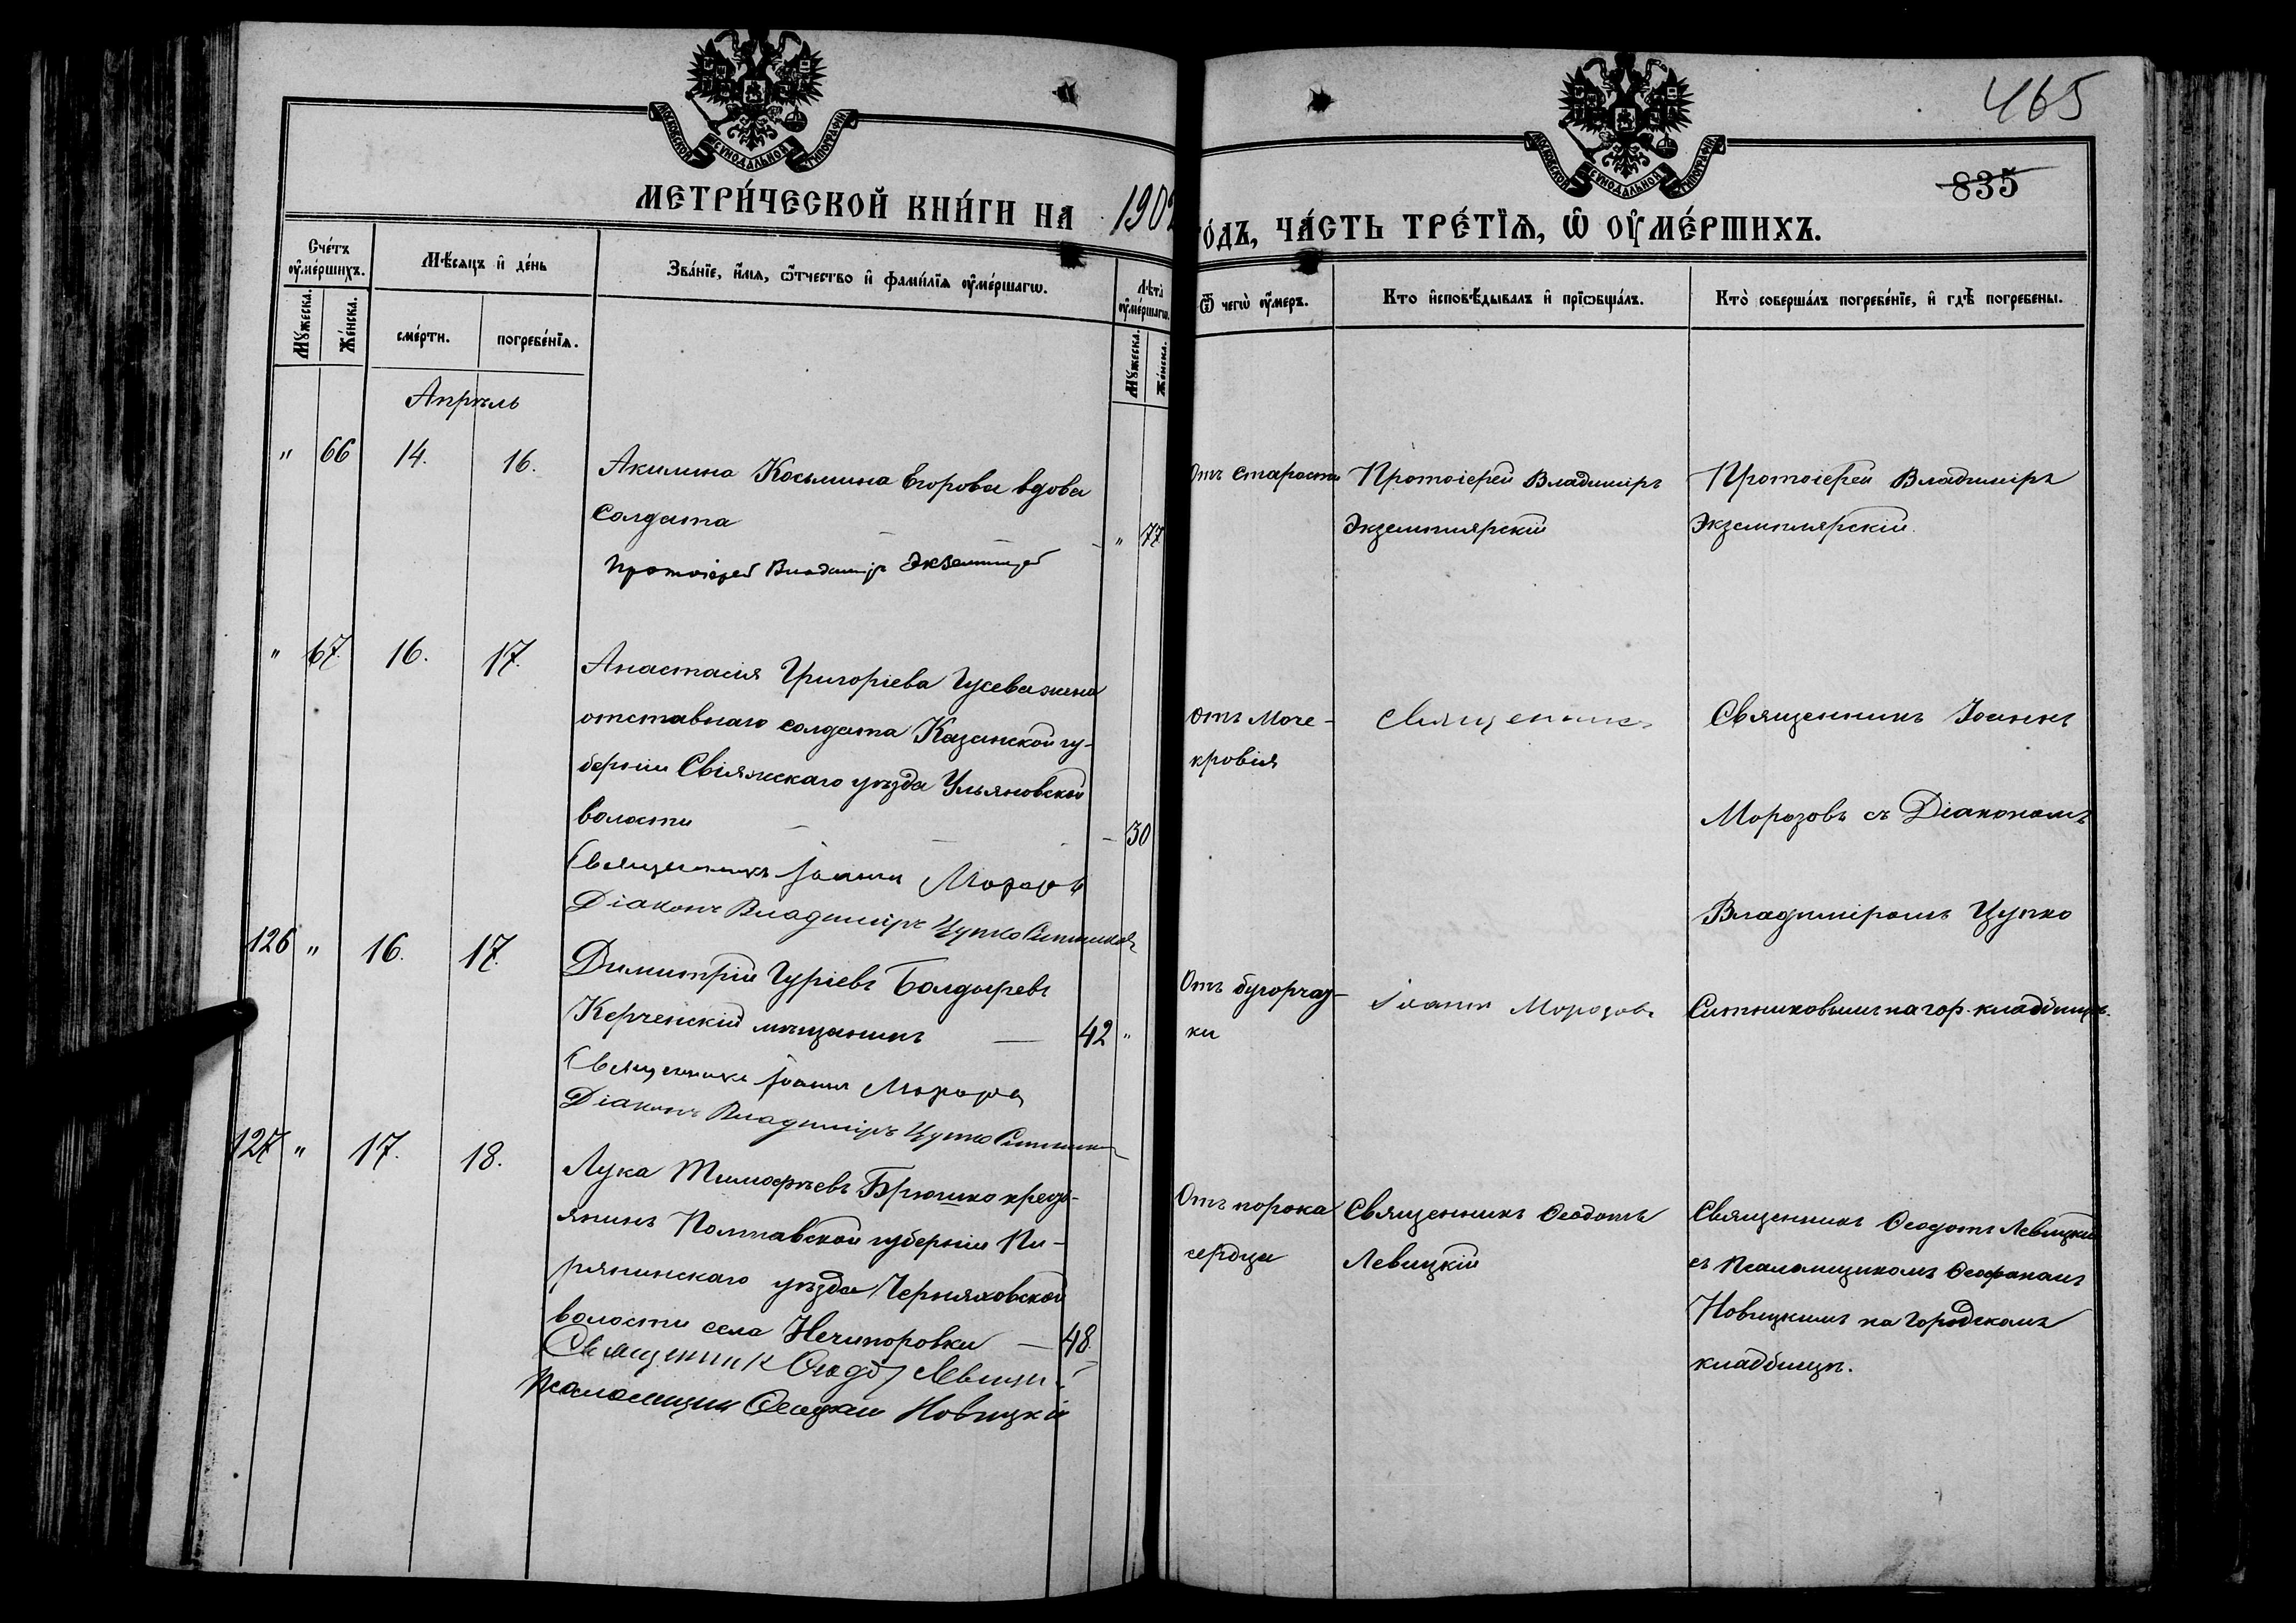 465
835
МОСКОВСКОЙ СѴНОДАЛЬНОЙ ТИПОГРАФІИ
МОСКОВСКОЙ СѴНОДАЛЬНОЙ ТИПОГРАФІИ
МЕТРИ́ЧЕСКОЙ КНИ́ГИ НА 1902
ГО́ДЪ, ЧА́СТЬ ТРЕ́ТЇѦ, Ѡ҆ ОУ҆МЕ́РШИХЪ.
Сче́тъ оу҆ме́ршихъ.
Мꙋ́жеска.
Же́нска.
Мѣ́сяцъ и҆ де́нь
сме́рти.
погребе́нїѧ.
Зва́нїе, и҆́мѧ, ѻ҆́тчество и҆ фами́лїѧ оу҆ме́ршагѡ.
Лѣ́та оу҆ме́ршагѡ.
Мꙋ́жеска.
Же́нска.
Ѿ чегѡ̀ оу҆́меръ.
Кто̀ и҆сповѣ́дывалъ и҆ прїѡбща́лъ.
Кто̀ соверша́лъ погребе́нїе, и҆ гдѣ̀ погребены.
Апрѣль
" 66 14. 16.
Акилина Косьмина Егорова вдова
солдата — — " 77
Протоіерей Владиміръ
Отъ старости
Протоіерей Владиміръ
Экземплярскій
Протоіерей Владиміръ
Экземплярскій.
" 67. 16. 17.
Анастасія Григоріева Гусева жена
отставнаго солдата Казанской гу-
берніи Свіяжскаго уѣзда Ульяновской
волости — — — 30
Священникъ Іоаннъ Морозовъ
Діаконъ Владиміръ Цупко Ситниковъ
Отъ моче-
кровія
Священникъ
Священникъ Іоаннъ
Морозовъ съ Діакономъ
Владиміромъ Цупко
126 " 16. 17.
Димитрій Гуріевъ Болдыревъ
Керченскій мѣщанинъ — 42 "
Священникъ Іоаннъ Морозовъ
Діаконъ Владиміръ Цупко Ситников
Отъ бугорчат-
ки
Іоаннъ Морозовъ
Ситниковымъ на гор. кладбищѣ.
127 " 17. 18.
Лука Тимофѣевъ Брюшко кресть-
янинъ Полтавской губерніи Пи-
рятинскаго уѣзда Черняховской
волости села Нечипоровки — 48.
Священник Ѳеодот Левицкій
Псаломщик Ѳеофан Новицкій
Отъ порока
сердца
Священникъ Ѳеодотъ
Левицкій
Священникъ Ѳеодотъ Левицкій
съ Псаломщикомъ Ѳеофаномъ
Новицкимъ на Городскомъ
кладбищѣ.